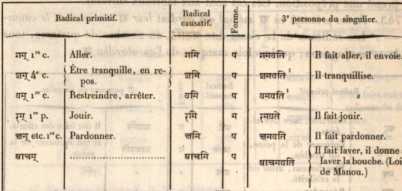 Radical primitif. Radical causatif. Forme. 3ᵉ personne du singulier.
गम् 1ʳᵉ c. Aller. गमि प गमयति Il fait aller, il envoie
शम् 4ᵉ c. Être tranquille, en repos. शमि प शमयति¹ Il tranquillise.
यम् 1ʳᵉ c. Restreindre, arrêter. यमि प यमयति¹
रम् 1ʳᵉ p. Jouir. रमि प रमयति Il fait jouir.
क्षम् etc. 1ʳᵉ c. Pardonner. क्षमि प क्षमयति Il fait pardonner.
आचम् आचमि प आचमयति Il fait laver, il donne à laver la bouche. (Loi de Manou.)